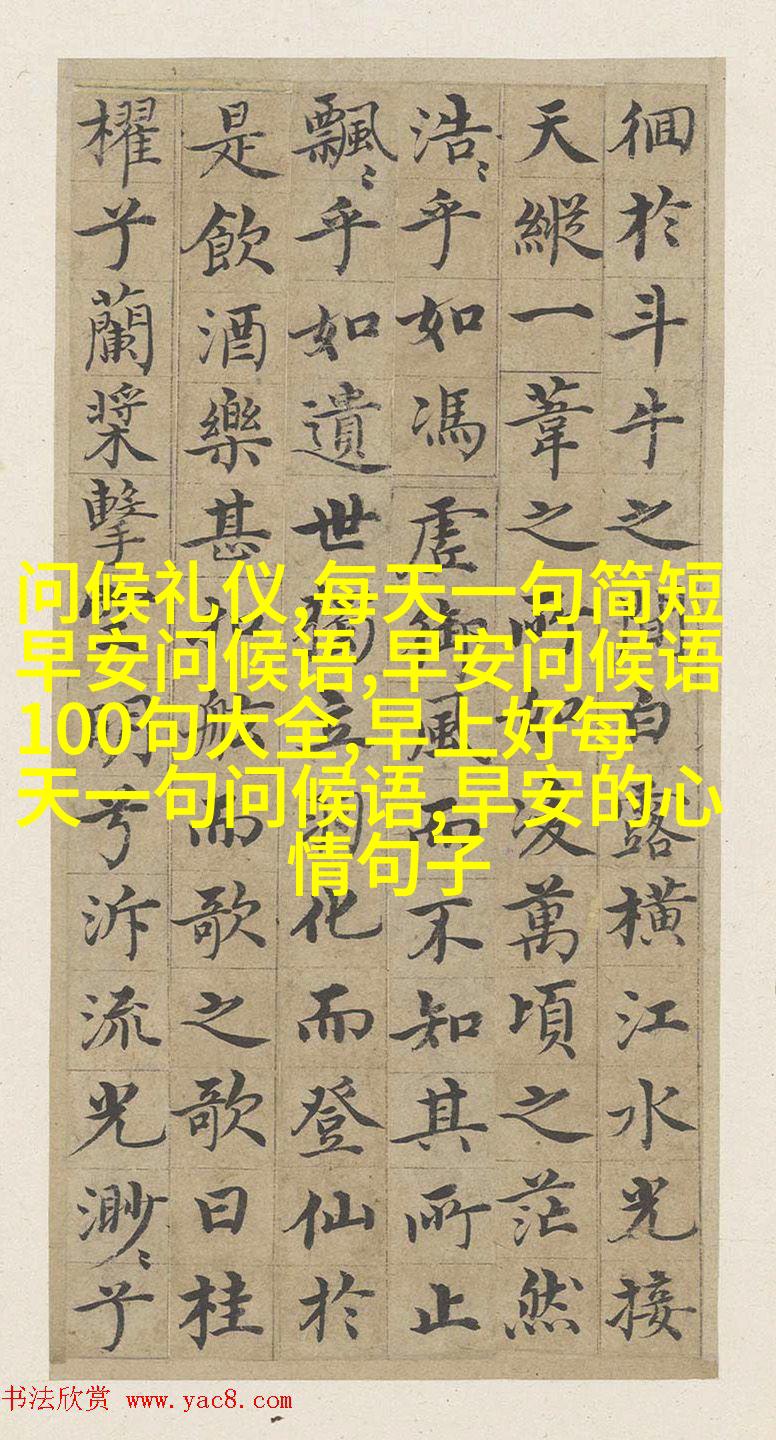 徊於斗牛之間白露橫江水光接
天縱一葦之所如淩萬頃之茫然
浩〻乎如馮虛御風而不知其所止
飄〻乎如遺世獨立羽化而登仙於
是飲酒樂甚扣舷而歌之歌曰桂
櫂兮蘭槳擊空明兮泝流光渺〻兮
问候礼仪,每天一句简短
早安问候语,早安问候语
100句大全,早上好每
天一句问候语,早安的心
情句子
书法欣赏 www.yac8.com